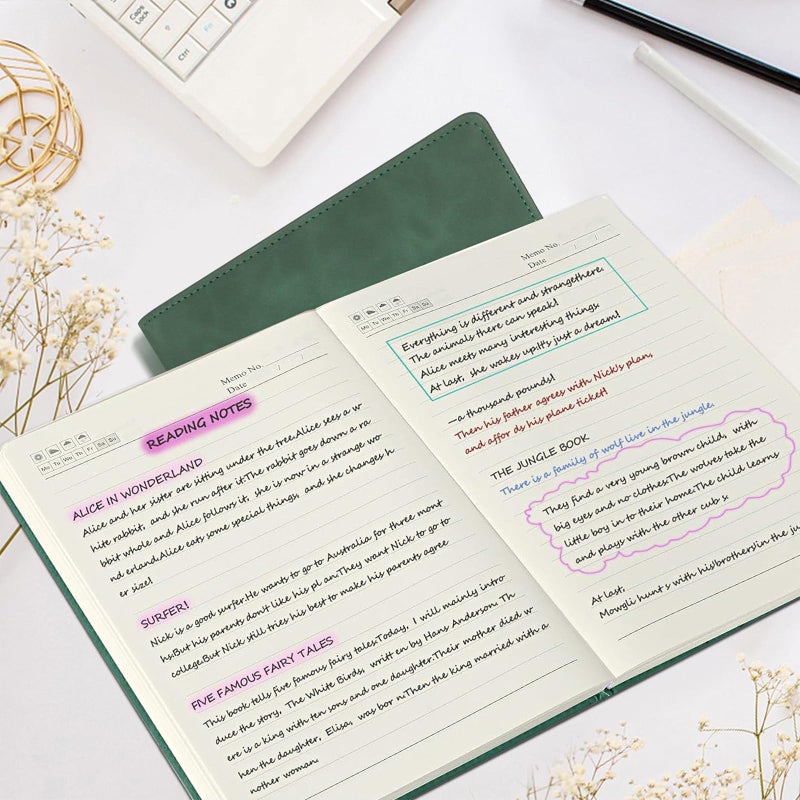 Caps Lock
Ctrl
Fn
Memo No.
Date / /
Mo Tu We Th Fr Sa Su
READING NOTES
ALICE IN WONDERLAND
Alice and her sister are sitting under the tree.Alice sees a w
hite rabbit, and she run after it.The rabbit goes down a ra
bbit whole and Alice follows it, she is now in a strange wo
nd erland.Alice eats some special things, and she changes h
er size!
SURFER!
Nick is a good surfer.He wants to go to Australia for three mont
hs.But his parents don't like his pl an.They want Nick to go to
college.But Nick still tries his best to make his parents agree
FIVE FAMOUS FAIRY TALES
This book tells five famous fairy tales.Today, I will mainly intro
duce the story, The White Birds, writt en by Hans Anderson. Th
ere is a king with ten sons and one daughter.Their mother died w
hen the daughter, Elisa, was bor n.Then the king married with a
nother woman.
Memo No.
Date / /
Mo Tu We Th Fr Sa Su
Everything is different and strangethere.
The animals there can speak!
Alice meets many interesting things.
At last, she wakes up.It's just a dream!
—a thousand pounds!
Then his father agrees with Nick's plan,
and affor ds his plane ticket!
THE JUNGLE BOOK
There is a family of wolf live in the jungle.
They find a very young brown child, with
big eyes and no clothes.The wolves take the
little boy in to their home.The child learns
and plays with the other cub s.
At last,
Mowgli hunt s with his(brothers)in the ju